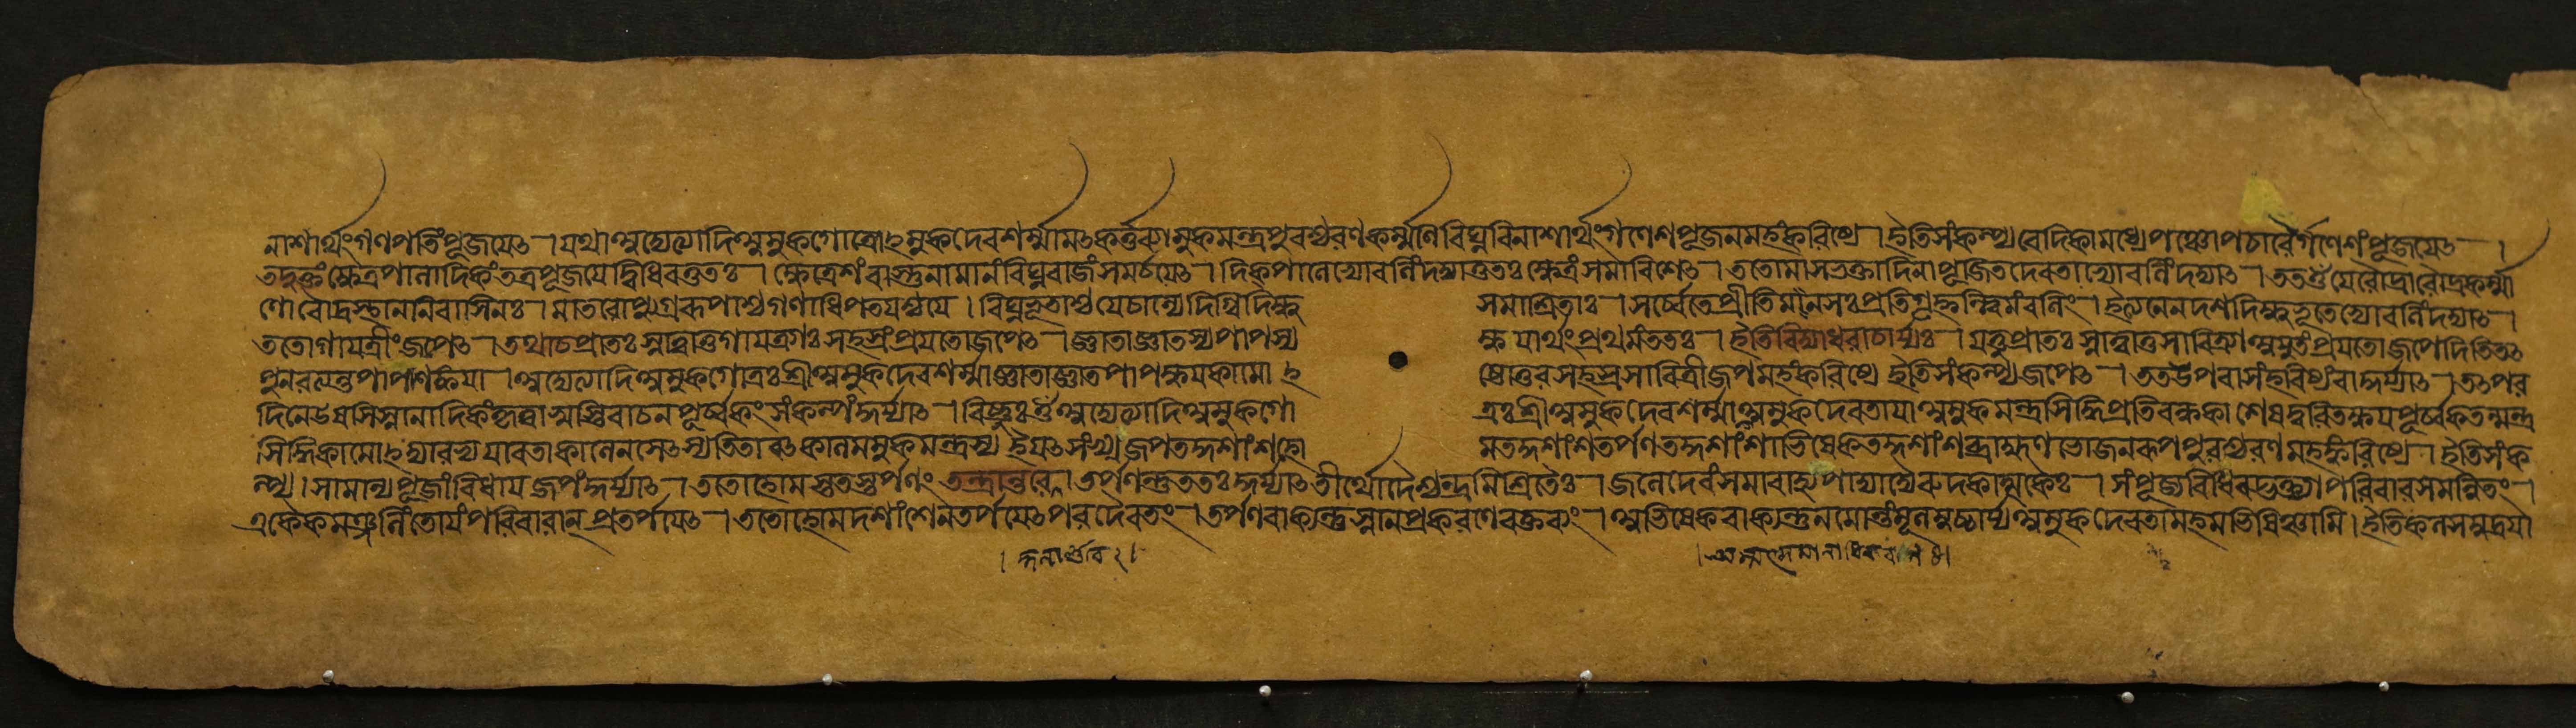 নাশার্থং গণপতিং পূজয়েৎ । যথা অদ্যেত্যাদি অমুকগোত্রোঽমুকদেবশর্ম্মামৎকর্ত্তব্যামুকমন্ত্রপুরশ্চরণকর্ম্মণি বিঘ্নবিনাশার্থং গণেশপূজনমহং করিষ্যে । ইতি সংকল্প্য বেদিকামধ্যে পঞ্চোপচারৈর্গণেশং পূজয়েৎ ।
তদুক্তং ক্ষেত্রপালাদিকং তত্র পূজয়েদ্বিধিবত্ততঃ । ক্ষেত্রেশং বাস্তুনামানং বিঘ্নরাজং সমর্চয়েৎ । দিক্পালেভ্যো বলিং দদ্যাত্ততঃ ক্ষেত্রং সমাবিশেৎ । ততো মাসভক্তাদিনা পূজিতদেবতাভ্যো বলিং দদ্যাৎ । ততঃ ওঁ যে রৌদ্রা রৌদ্রকর্ম্মা
ণো রৌদ্রস্থাননিবাসিনঃ । মাতরোপ্যুগ্ররূপাশ্চ গণাধিপতয়শ্চ যে । বিঘ্নভূতাশ্চ যে চান্যে দিগ্বিদিক্ষু সমাশ্রিতাঃ । সর্ব্বে তে প্রীতিমানসঃ প্রতিগৃহ্নন্ত্বিমং বলিং । ইত্যনেন দশদিক্ষু ভূতেভ্যো বলিং দদ্যাৎ ।
ততো গায়ত্রীং জপেৎ । তথাচ প্রাতঃ স্নাত্বা তু গায়ত্র্যাঃ সহস্রং প্রয়তো জপেৎ । জ্ঞাতাজ্ঞাতস্য পাপস্য ক্ষয়ার্থং প্রথমং ততঃ । ইতি বিদ্যাধরাচার্য্যঃ । যত্তু প্রাতঃ স্নাত্বা তু সাবিত্র্যা অযুতং প্রয়তো জপেদিতি তৎ
পুনরত্যন্তপাপশঙ্কয়া । অদ্যেত্যাদি অমুকগোত্রঃ শ্রীঅমুকদেবশর্ম্মা জ্ঞাতাজ্ঞাতপাপক্ষয়কামোঽ ষ্টোত্তরসহস্রসাবিত্রীজপমহং করিষ্যে ইতি সংকল্প্য জপেৎ । তত উপবাসং হবিষ্যং বা কুর্য্যাৎ । তৎপর
দিনে উষসি স্নানাদিকং কৃত্বা স্বস্তিবাচনপূর্ব্বকং সংকল্পং কুর্য্যাৎ । বিষ্ণুঃ ওঁ অদ্যেত্যাদি অমুকগো ত্রঃ শ্রীঅমুকদেবশর্ম্মা অমুকদেবতায়া অমুকমন্ত্রসিদ্ধিপ্রতিবন্ধকাশেষদুরিতক্ষয়পূর্ব্বকতন্মন্ত্র
সিদ্ধিকামোঽদ্যারভ্য যাবতা কালেন সেৎস্যতি তাবৎকালমমুকমন্ত্রস্য ইয়ৎসংখ্যজপতদ্দশাংশহো মতদ্দশাংশতর্পণতদ্দশাংশাভিষেকতদ্দশাংশব্রাহ্মণভোজনরূপপুরশ্চরণমহং করিষ্যে । ইতি সংক
ল্প্য । সামান্যপূজাং বিধায় জপং কুর্য্যাৎ । ততো হোমস্ততস্তর্পণং তন্ত্রান্তরে । তর্পণন্তু ততঃ কুর্য্যাৎ তীর্থোদৈশ্চন্দ্রমিশ্রিতৈঃ । জলে দেবং সমাবাহ্য পাদ্যাদ্যৈরুদকাত্মকৈঃ । সংপূজ্য বিধিবদ্ভক্ত্যা পরিবারসমন্বিতং ।
একৈকমঞ্জলিং তোয়ং পরিবারান্ প্রতর্পয়েৎ । ততো হোমদশাংশেন তর্পয়েৎ পরদেবতং । তর্পণবাক্যন্তু স্নানপ্রকরণে বক্তব্যং । অভিষেকবাক্যন্তু নমোন্তং মূলমুচ্চার্য্য অমুকদেবতামহমভিষিঞ্চামি । ইতি কলসমুদ্রয়া
। কুলার্ণব ২ ।